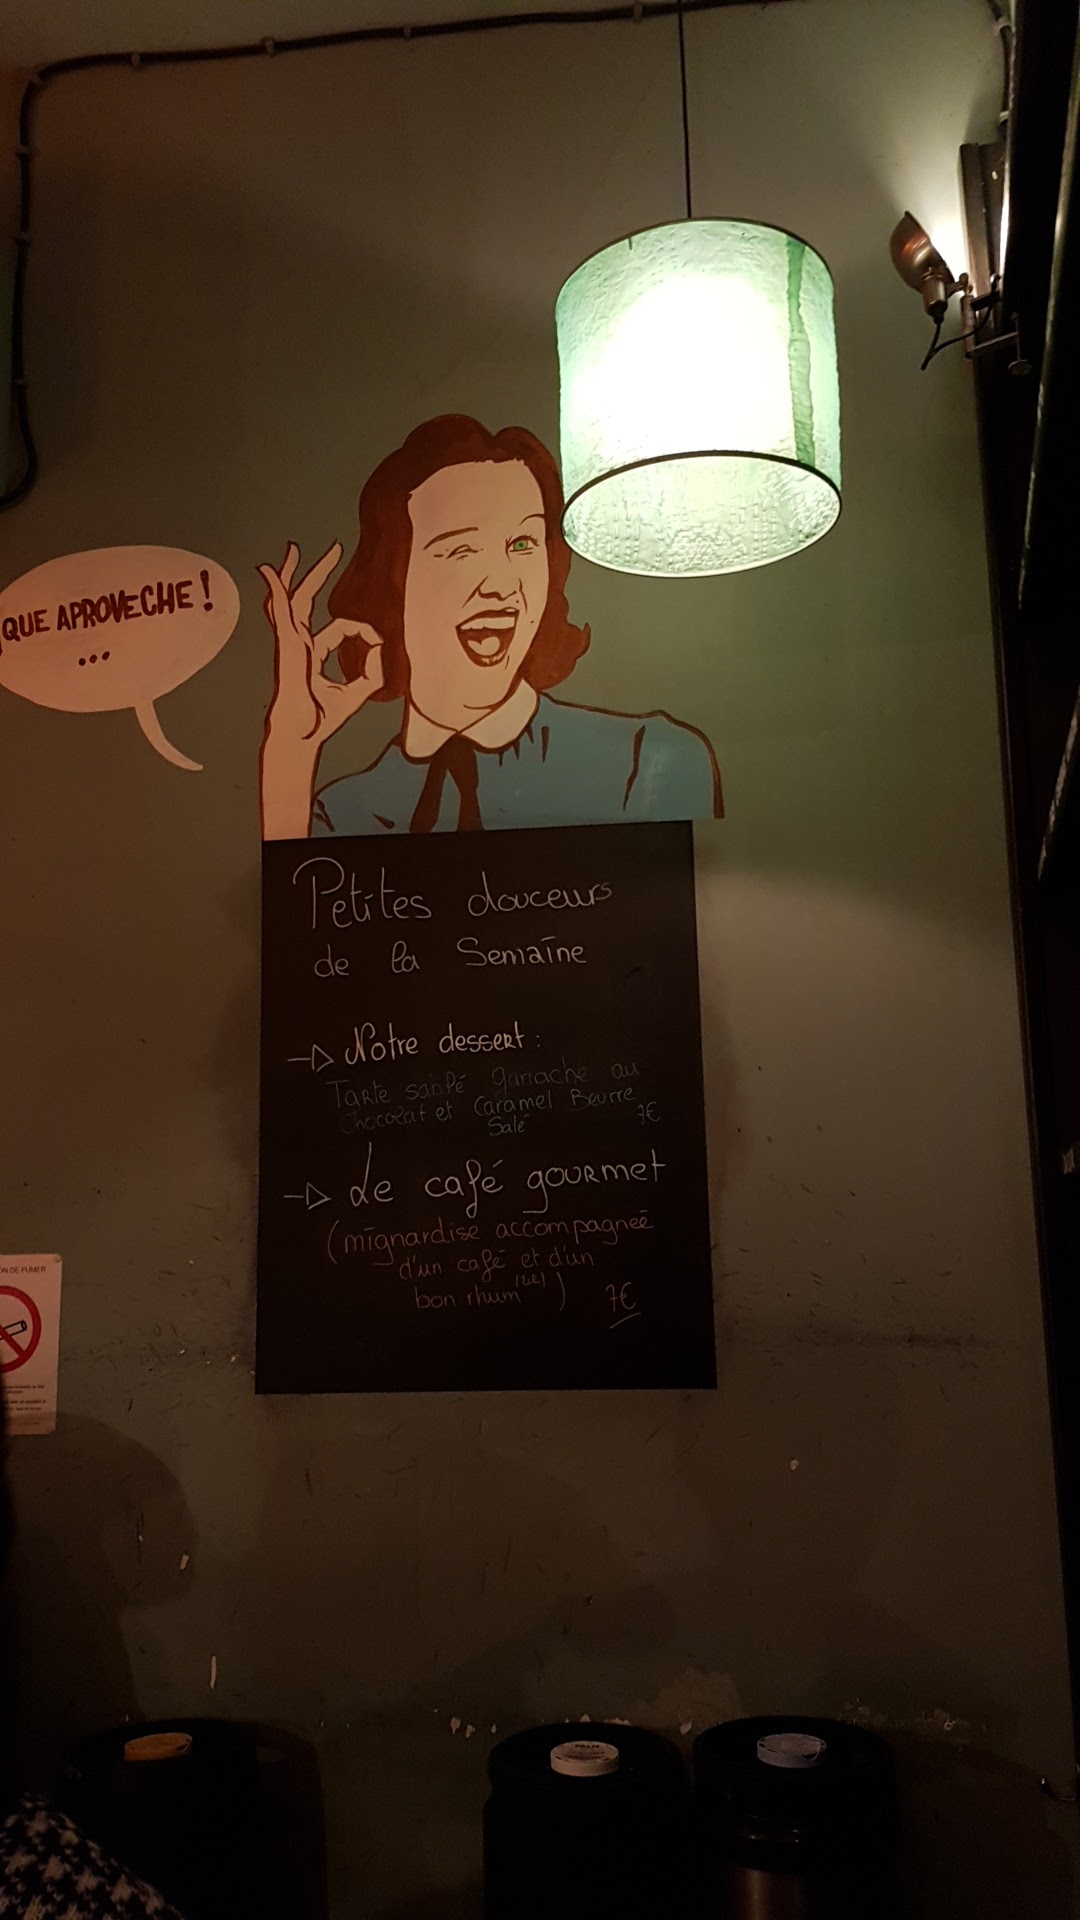 QUE APROVECHE !
...
Petites douceurs
de la Semaine
Notre dessert :
Tarte sablé ganache au
Chocolat et Caramel Beurre
Salé 7€
Le café gourmet
(mignardise accompagneé
d'un café et d'un
bon rhum )
7€
ON DE FUMER